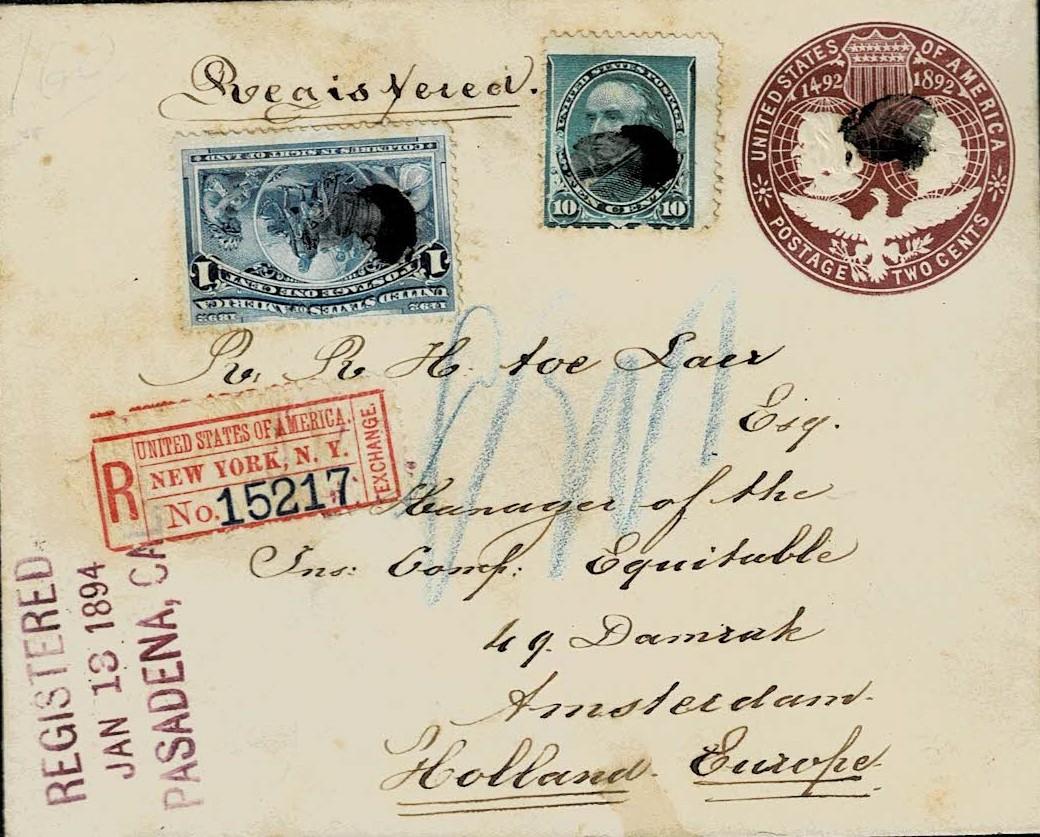 Registered.
UNITED STATES OF AMERICA
1492 1892
POSTAGE TWO CENTS
UNITED STATES POSTAGE
10 CENTS 10
COLUMBUS IN SIGHT OF LAND
1 POSTAGE ONE CENT 1
UNITED STATES OF AMERICA
1492 1892
R. R. H. toe Laer
Esq.
Manager of the
Ins: Comp: Equitable
49. Damrak
Amsterdam.
Holland. Europe.
R
UNITED STATES OF AMERICA.
NEW YORK, N. Y.
No. 15217
EXCHANGE.
REGISTERED
JAN 13 1894
PASADENA, CA